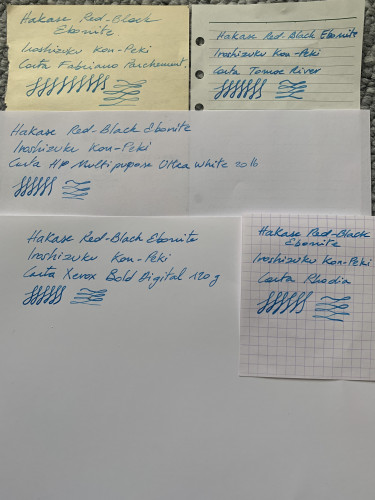 Hakase Red-Black
Ebonite.
Iroshizuku Kon-Peki
Carta Fabriano Parchement.
Hakase Red-Black Ebonite
Iroshizuku Kon-Peki
Carta Tomoe River
Hakase Red-Black Ebonite
Iroshizuku Kon-Peki
Carta HP Multipupose Ultra White 20lb
Hakase Red-Black Ebonite
Iroshizuku Kon-Peki
Carta Xerox Bold Digital 120g
Hakase Red-Black
Ebonite
Iroshizuku Kon-Peki
Carta Rhodia